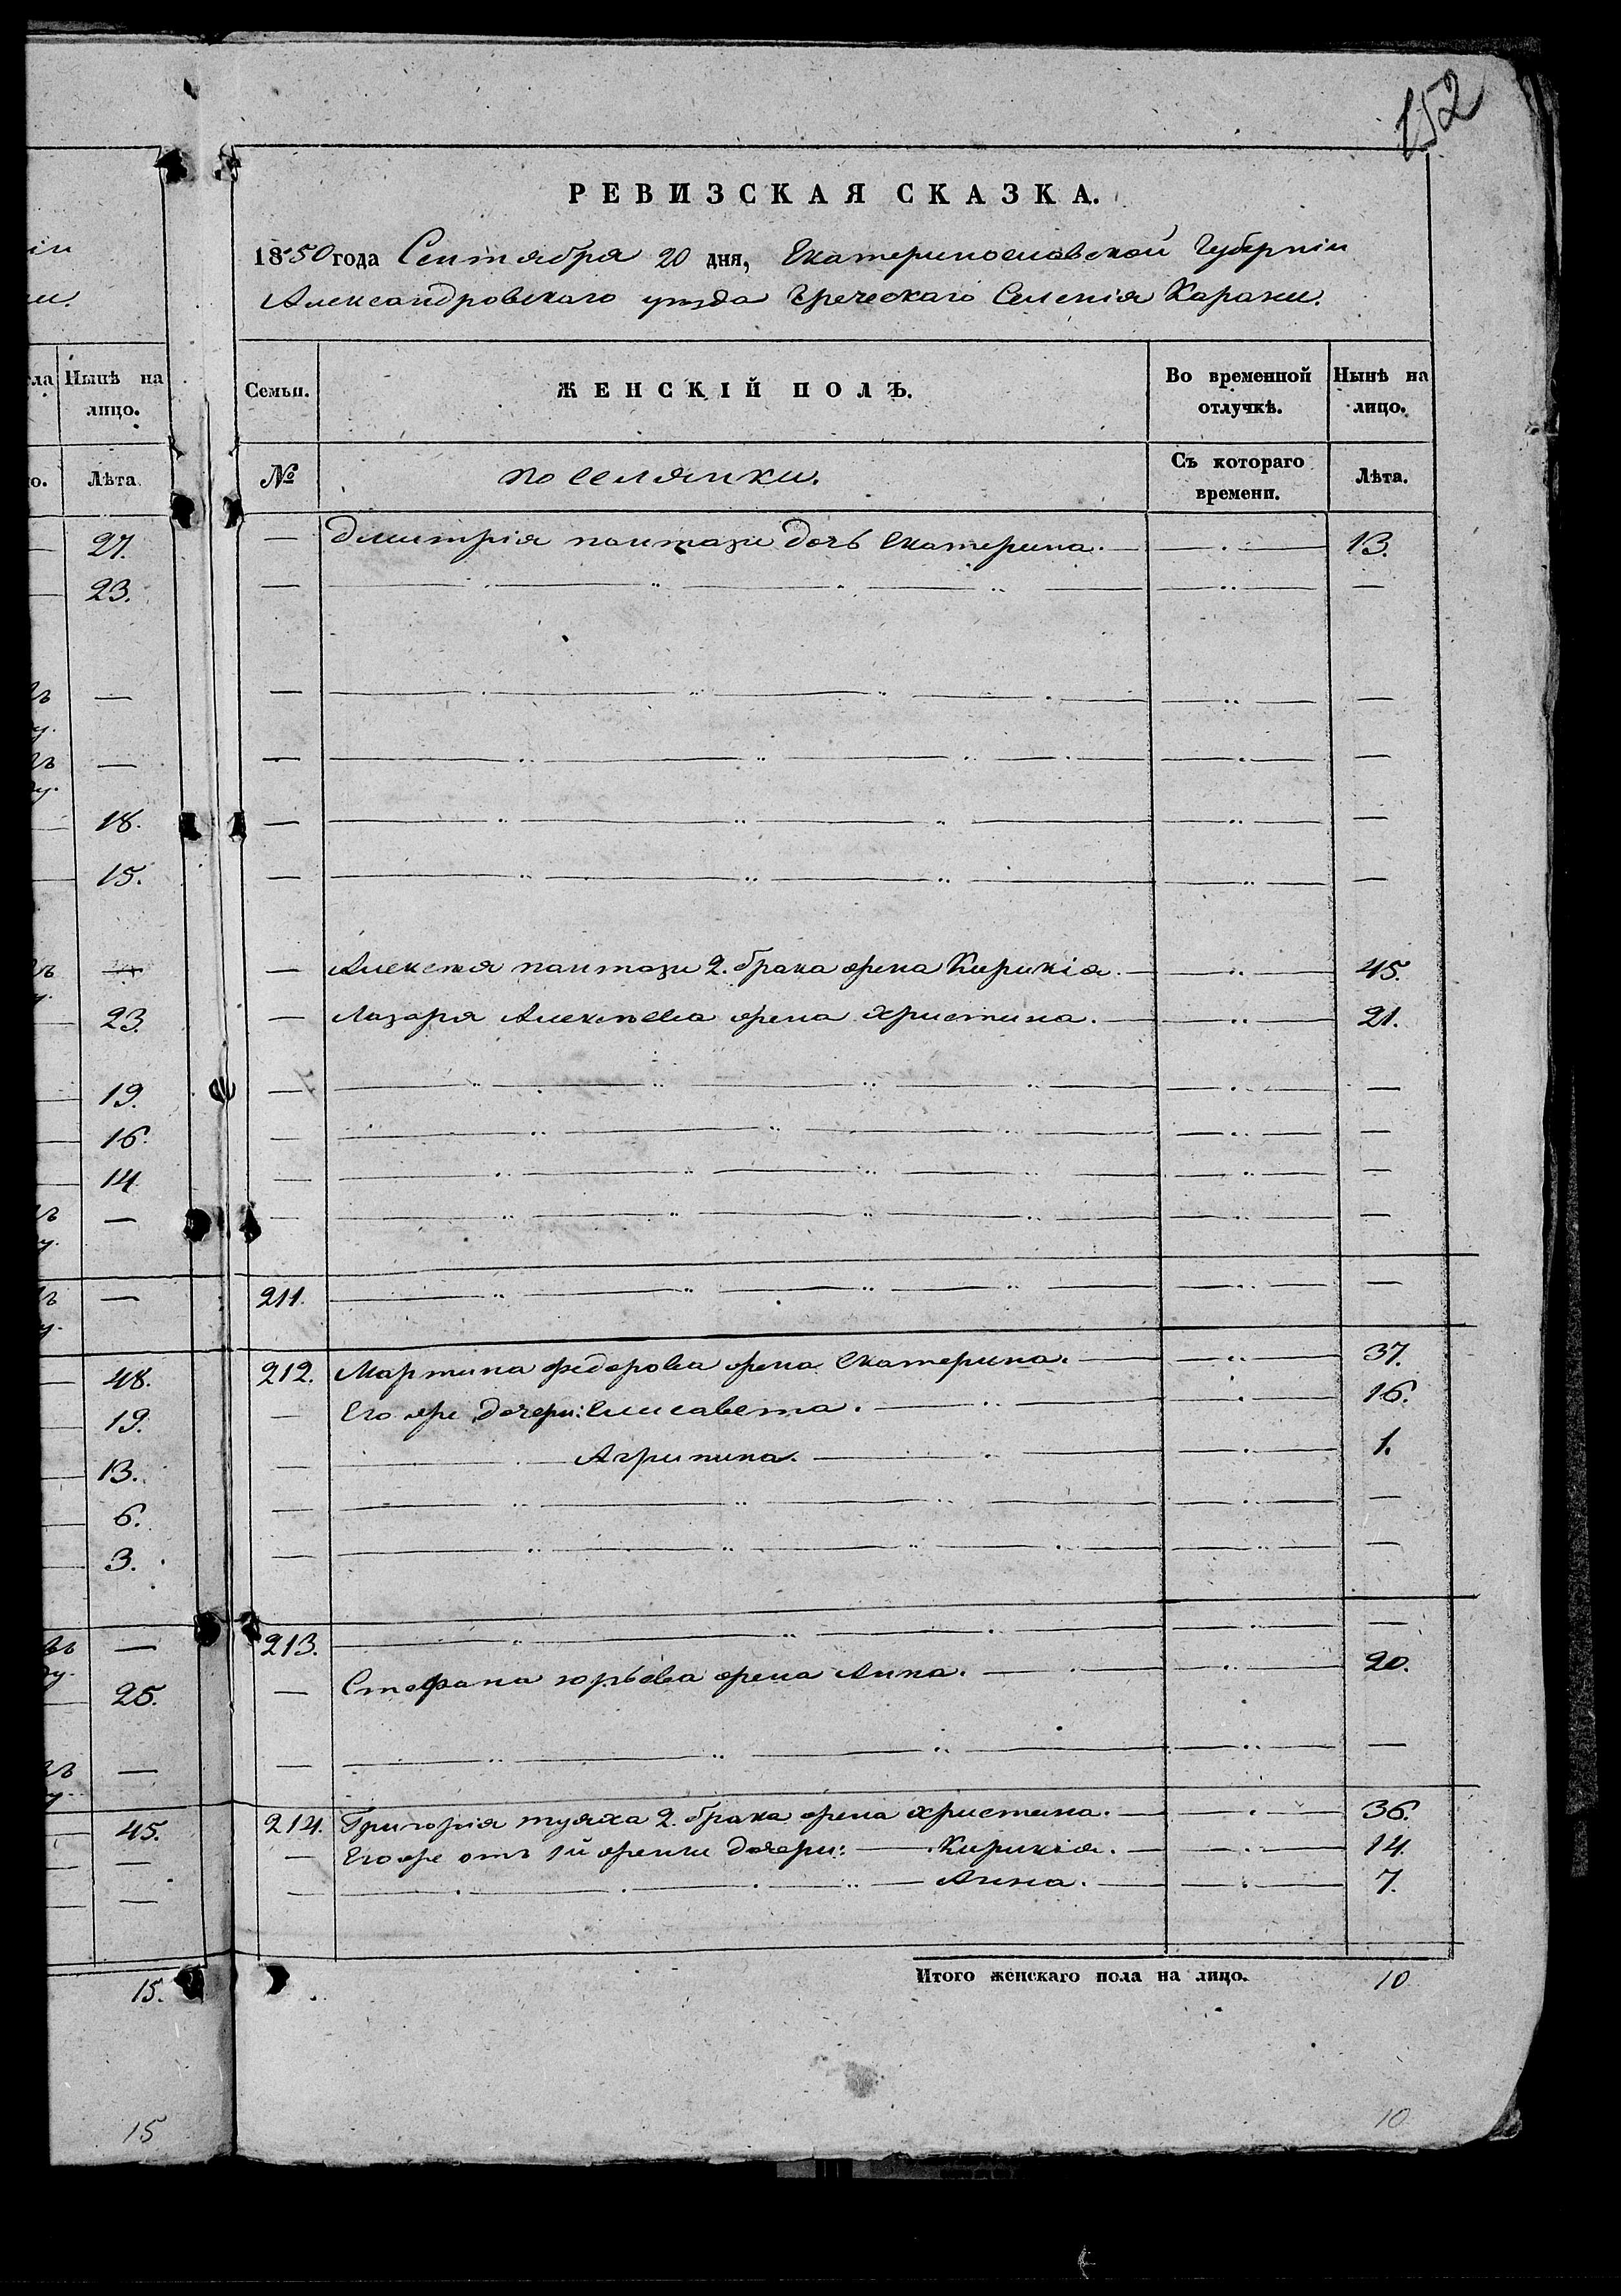 152
РЕВИЗСКАЯ СКАЗКА.
1850 года Сентября 20 дня, Екатеринославской Губерніи
Александровскаго уѣзда Греческаго Селенія Карани.
Семьи. ЖЕНСКІЙ ПОЛЪ. Во временной отлучкѣ. Нынѣ на лицо.
№ поселянки. Съ котораго времени. Лѣта.
— Дмитрія пантази дочь Екатерина. — 13.
— Алексѣя пантази 2. брака жена Кирикія. — 45.
— Лазаря Алексѣева жена Христина. — 21.
211. —
212. Мартина федорова жена Екатерина. — 37.
— Его же дочери: Елисавета. — 16.
— Агрипина. — 1.
213. —
— Стефана юрьева жена Анна. — 20.
214. Григорія туяха 2. брака жена Христина. — 36.
— Его же отъ 1й женки дочери: — Кирикія. — 14.
— Анна. — 7.
Итого женскаго пола на лицо. 10
10
іи
и.
ла Нынѣ на лицо.
о. Лѣта
27.
23.
ъ —
у.
ъ —
у.
18.
15.
ъ —
у.
23.
19.
16.
14
ъ —
у.
ъ —
у.
48.
19.
13.
6.
3.
ъ —
у.
25.
ъ —
у.
45.
—
—
15.
15